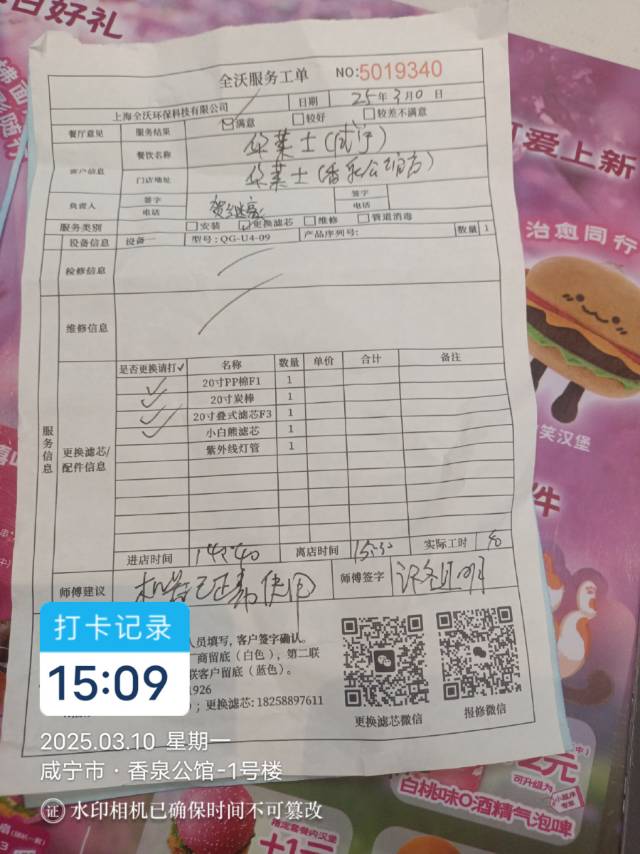 日好礼
全沃服务工单 NO:5019340
上海全沃环保科技有限公司 日期 25年3月10日
餐厅意见 服务结果 ☑满意 □较好 □较差不满意
客户信息 餐饮名称 华莱士(咸宁)
门店地址 华莱士(香泉公馆店)
负责人 签字 签字
电话 电话
服务类别 □安装 ☑更换滤芯 □维修 □管道消毒
设备信息 设备一 型号:QG-U4-09 产品序列号: 数量 1
检修信息
维修信息
服务信息
更换滤芯/配件信息
是否更换请打√ 名称 数量 单价 合计 备注
✓ 20寸PP棉F1 1
✓ 20寸炭棒 1
✓ 20寸叠式滤芯F3 1
✓ 小白熊滤芯 1
紫外线灯管 1
进店时间 14:40 离店时间 实际工时
师傅建议 机器已正常使用 师傅签字
人员填写,客户签字确认。
商留底(白色),第二联
联客户留底(蓝色)。
1926
;更换滤芯:18258897611
更换滤芯微信 报修微信
打卡记录
15:09
2025.03.10 星期一
咸宁市·香泉公馆-1号楼
证 水印相机已确保时间不可篡改
可爱上新
治愈同行
笑汉堡
件
2元
可升级为
白桃味0酒精气泡啤
+1元